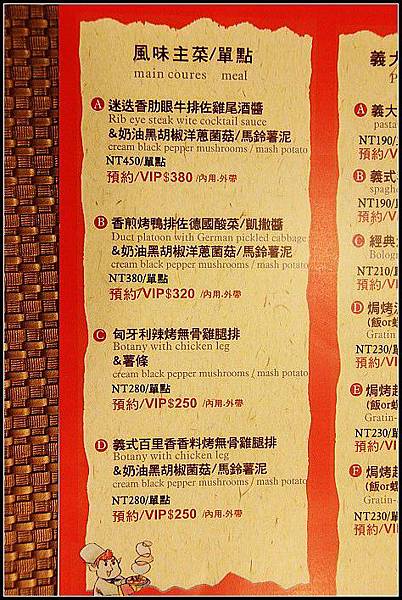 風味主菜/單點
main coures meal
A 迷迭香肋眼牛排佐雞尾酒醬
Rib eye steak wite cocktail sauce
&奶油黑胡椒洋蔥菌菇/馬鈴薯泥
cream black pepper mushrooms / mash potato
NT450/單點
預約/VIP$380 /內用.外帶
B 香煎烤鴨排佐德國酸菜/凱撒醬
Duct platoon with German pickled cabbage
&奶油黑胡椒洋蔥菌菇/馬鈴薯泥
cream black pepper mushrooms / mash potato
NT380/單點
預約/VIP$320 /內用.外帶
C 匈牙利辣烤無骨雞腿排
Botany with chicken leg
&薯條
cream black pepper mushrooms / mash potato
NT280/單點
預約/VIP$250 /內用.外帶
D 義式百里香香料烤無骨雞腿排
Botany with chicken leg
&奶油黑胡椒菌菇/馬鈴薯泥
cream black pepper mushrooms / mash potato
NT280/單點
預約/VIP$250 /內用.外帶
義大
A 義大
pasta
NT190/
預約/VI
B 義式
spaghe
NT190/
預約/VI
C 經典
Bologn
NT210/
預約/VI
D 焗烤
(飯or
Gratin-
NT230/
預約/VI
E 焗烤
(飯or
Gratin-
NT230/
預約/VI
F 焗烤
(飯or
Gratin-
NT230/
預約/VI